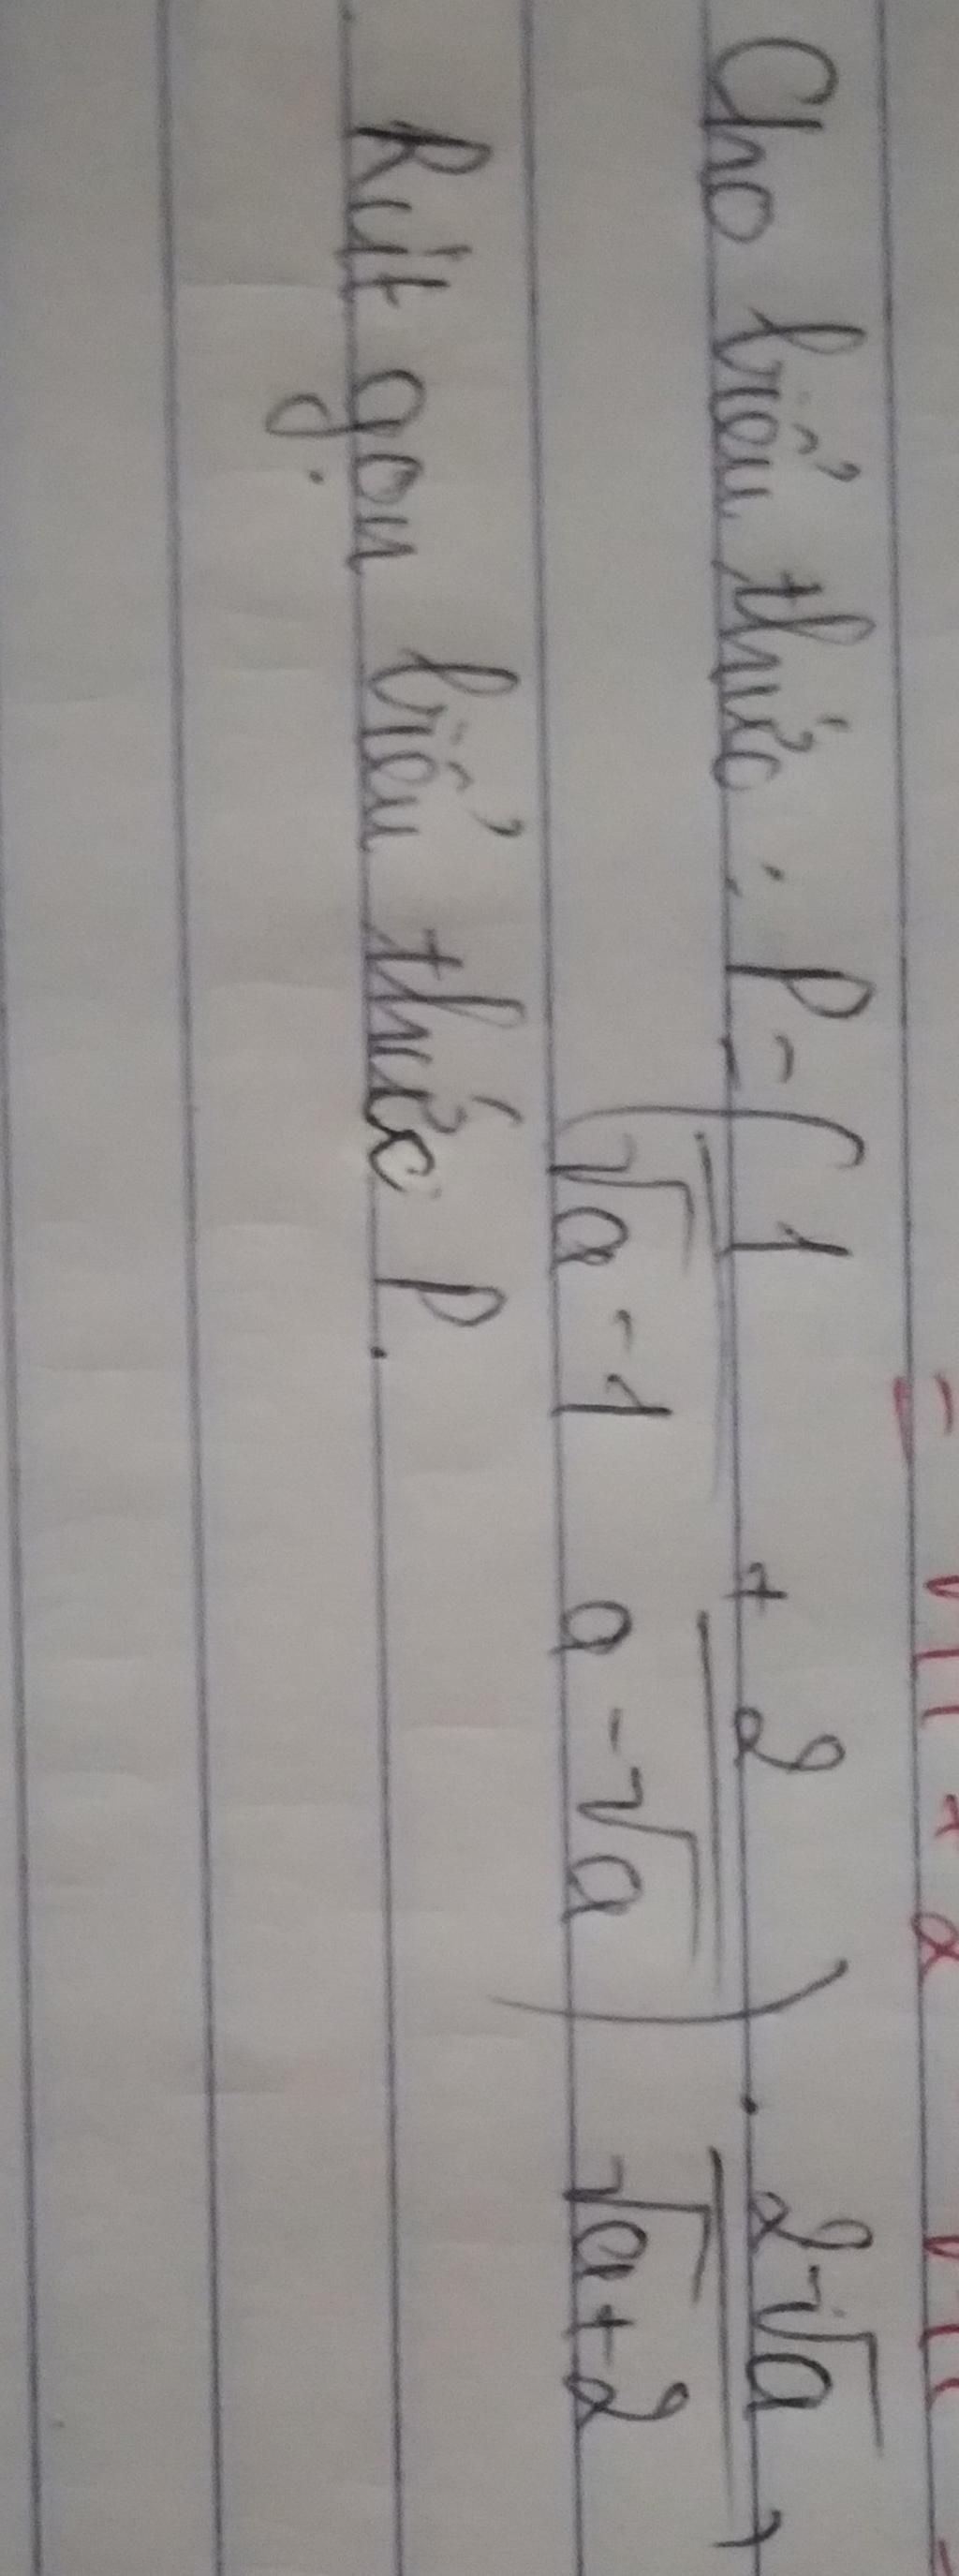 Cho biểu thức: P = ( 1/(√a - 1) + 2/(a - √a) ) . (2-√a)/(√a+2) ,
Rút gọn biểu thức P.